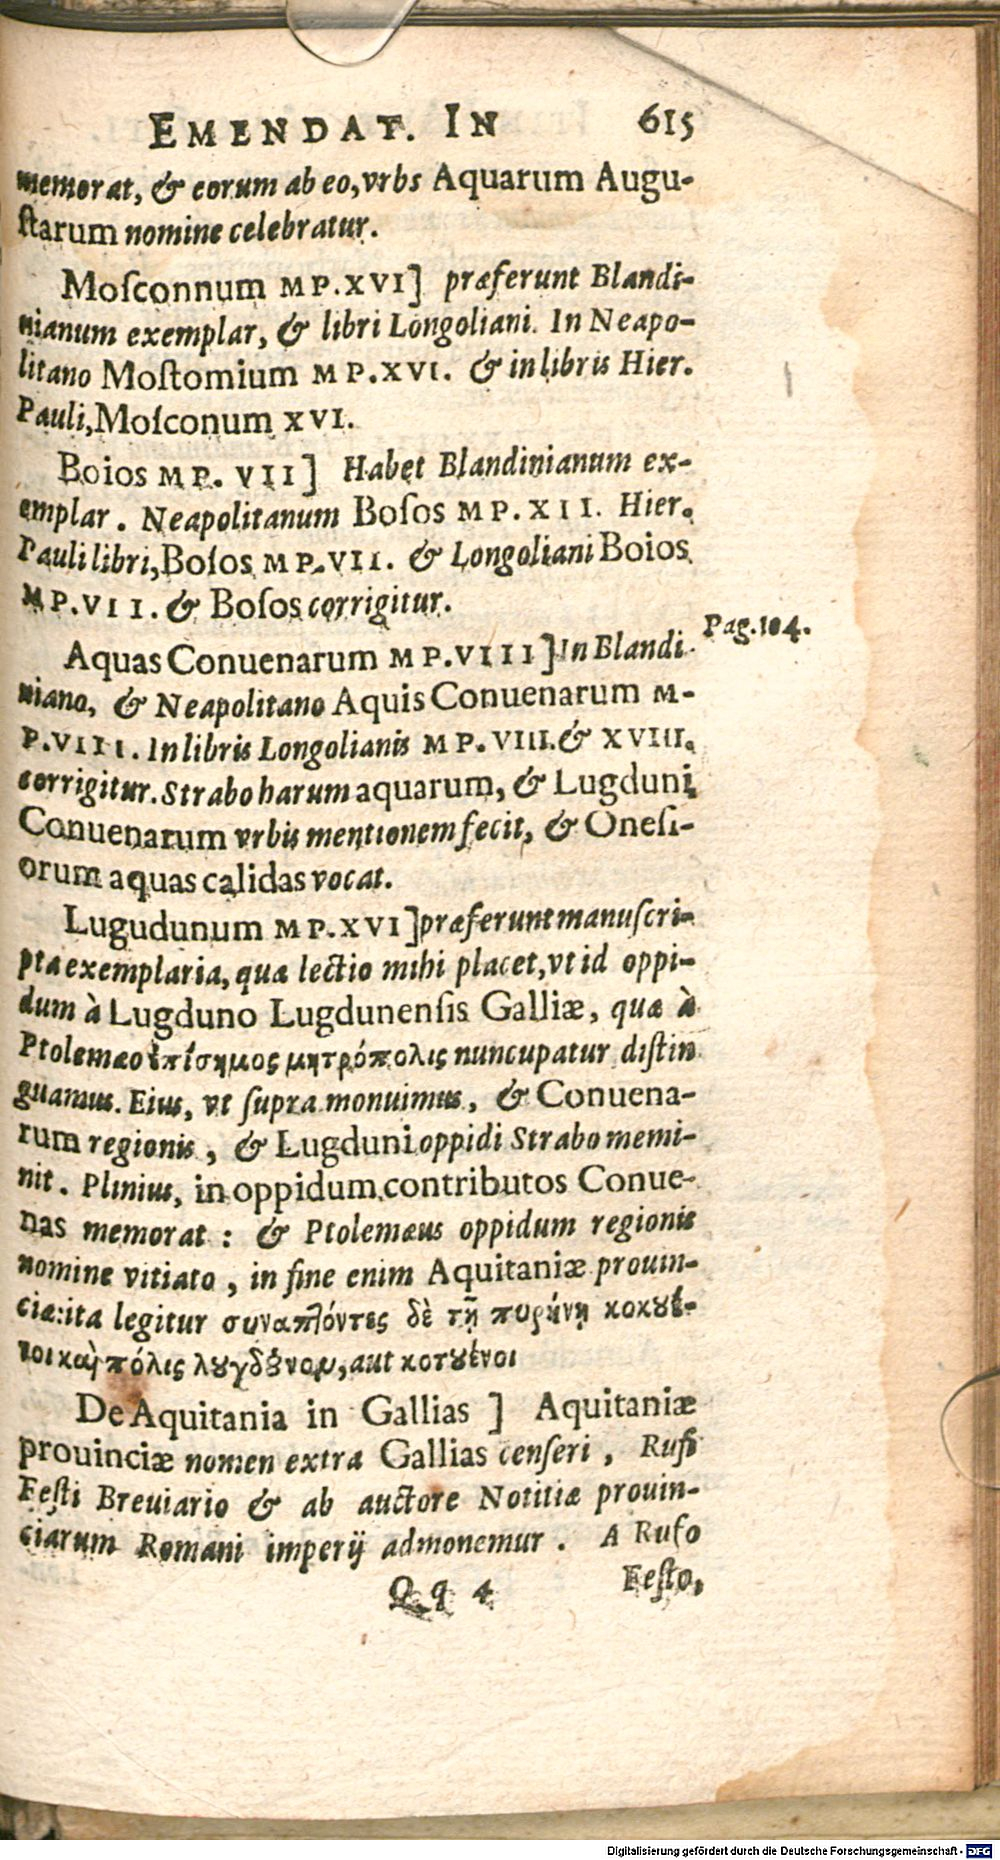 EMENDAT. IN 615
memorat, & eorum ab eo, vrbs Aquarum Augu-
ſtarum nomine celebratur.
Moſconnum MP.XVI] præferunt Blandi-
nianum exemplar, & libri Longoliani. In Neapo-
litano Moſtomium MP.XVI. & in libris Hier.
Pauli, Moſconum XVI.
Boios MP. VII] Habet Blandinianum ex-
emplar. Neapolitanum Boſos MP.XII. Hier.
Pauli libri, Boſos MP.VII. & Longoliani Boios
MP.VII. & Boſos corrigitur.
Aquas Conuenarum MP.VIII] In Blandi-
Pag.104.
niano, & Neapolitano Aquis Conuenarum M-
P.VIII. In libris Longolianis MP.VIII. & XVIII.
corrigitur. Strabo harum aquarum, & Lugduni
Conuenarum vrbis mentionem fecit, & Oneſi-
orum aquas calidas vocat.
Lugudunum MP.XVI] præferunt manuſcri-
pta exemplaria, qua lectio mihi placet, vt id oppi-
dum à Lugduno Lugdunenſis Galliæ, qua à
Ptolemæo ἐπίσημος μητρόπολις nuncupatur diſtin
guamus. Eius, vt ſupra monuimus, & Conuena-
rum regionis, & Lugduni oppidi Strabo memi-
nit. Plinius, in oppidum contributos Conue-
nas memorat: & Ptolemæus oppidum regionis
nomine vitiato, in fine enim Aquitaniæ prouin-
ciæ: ita legitur συναπτόντες δὲ τῇ πυρήνῃ κοκȣέ-
νοι καὶ πόλις λȣγδȣ́νομ, aut κοτȣένοι
De Aquitania in Gallias ] Aquitaniæ
prouinciæ nomen extra Gallias cenſeri, Rufi
Feſti Breuiario & ab auctore Notitiæ prouin-
ciarum Romani imperij admonemur. A Rufo
Qq 4 Feſto,
Digitalisierung gefördert durch die Deutsche Forschungsgemeinschaft - DFG